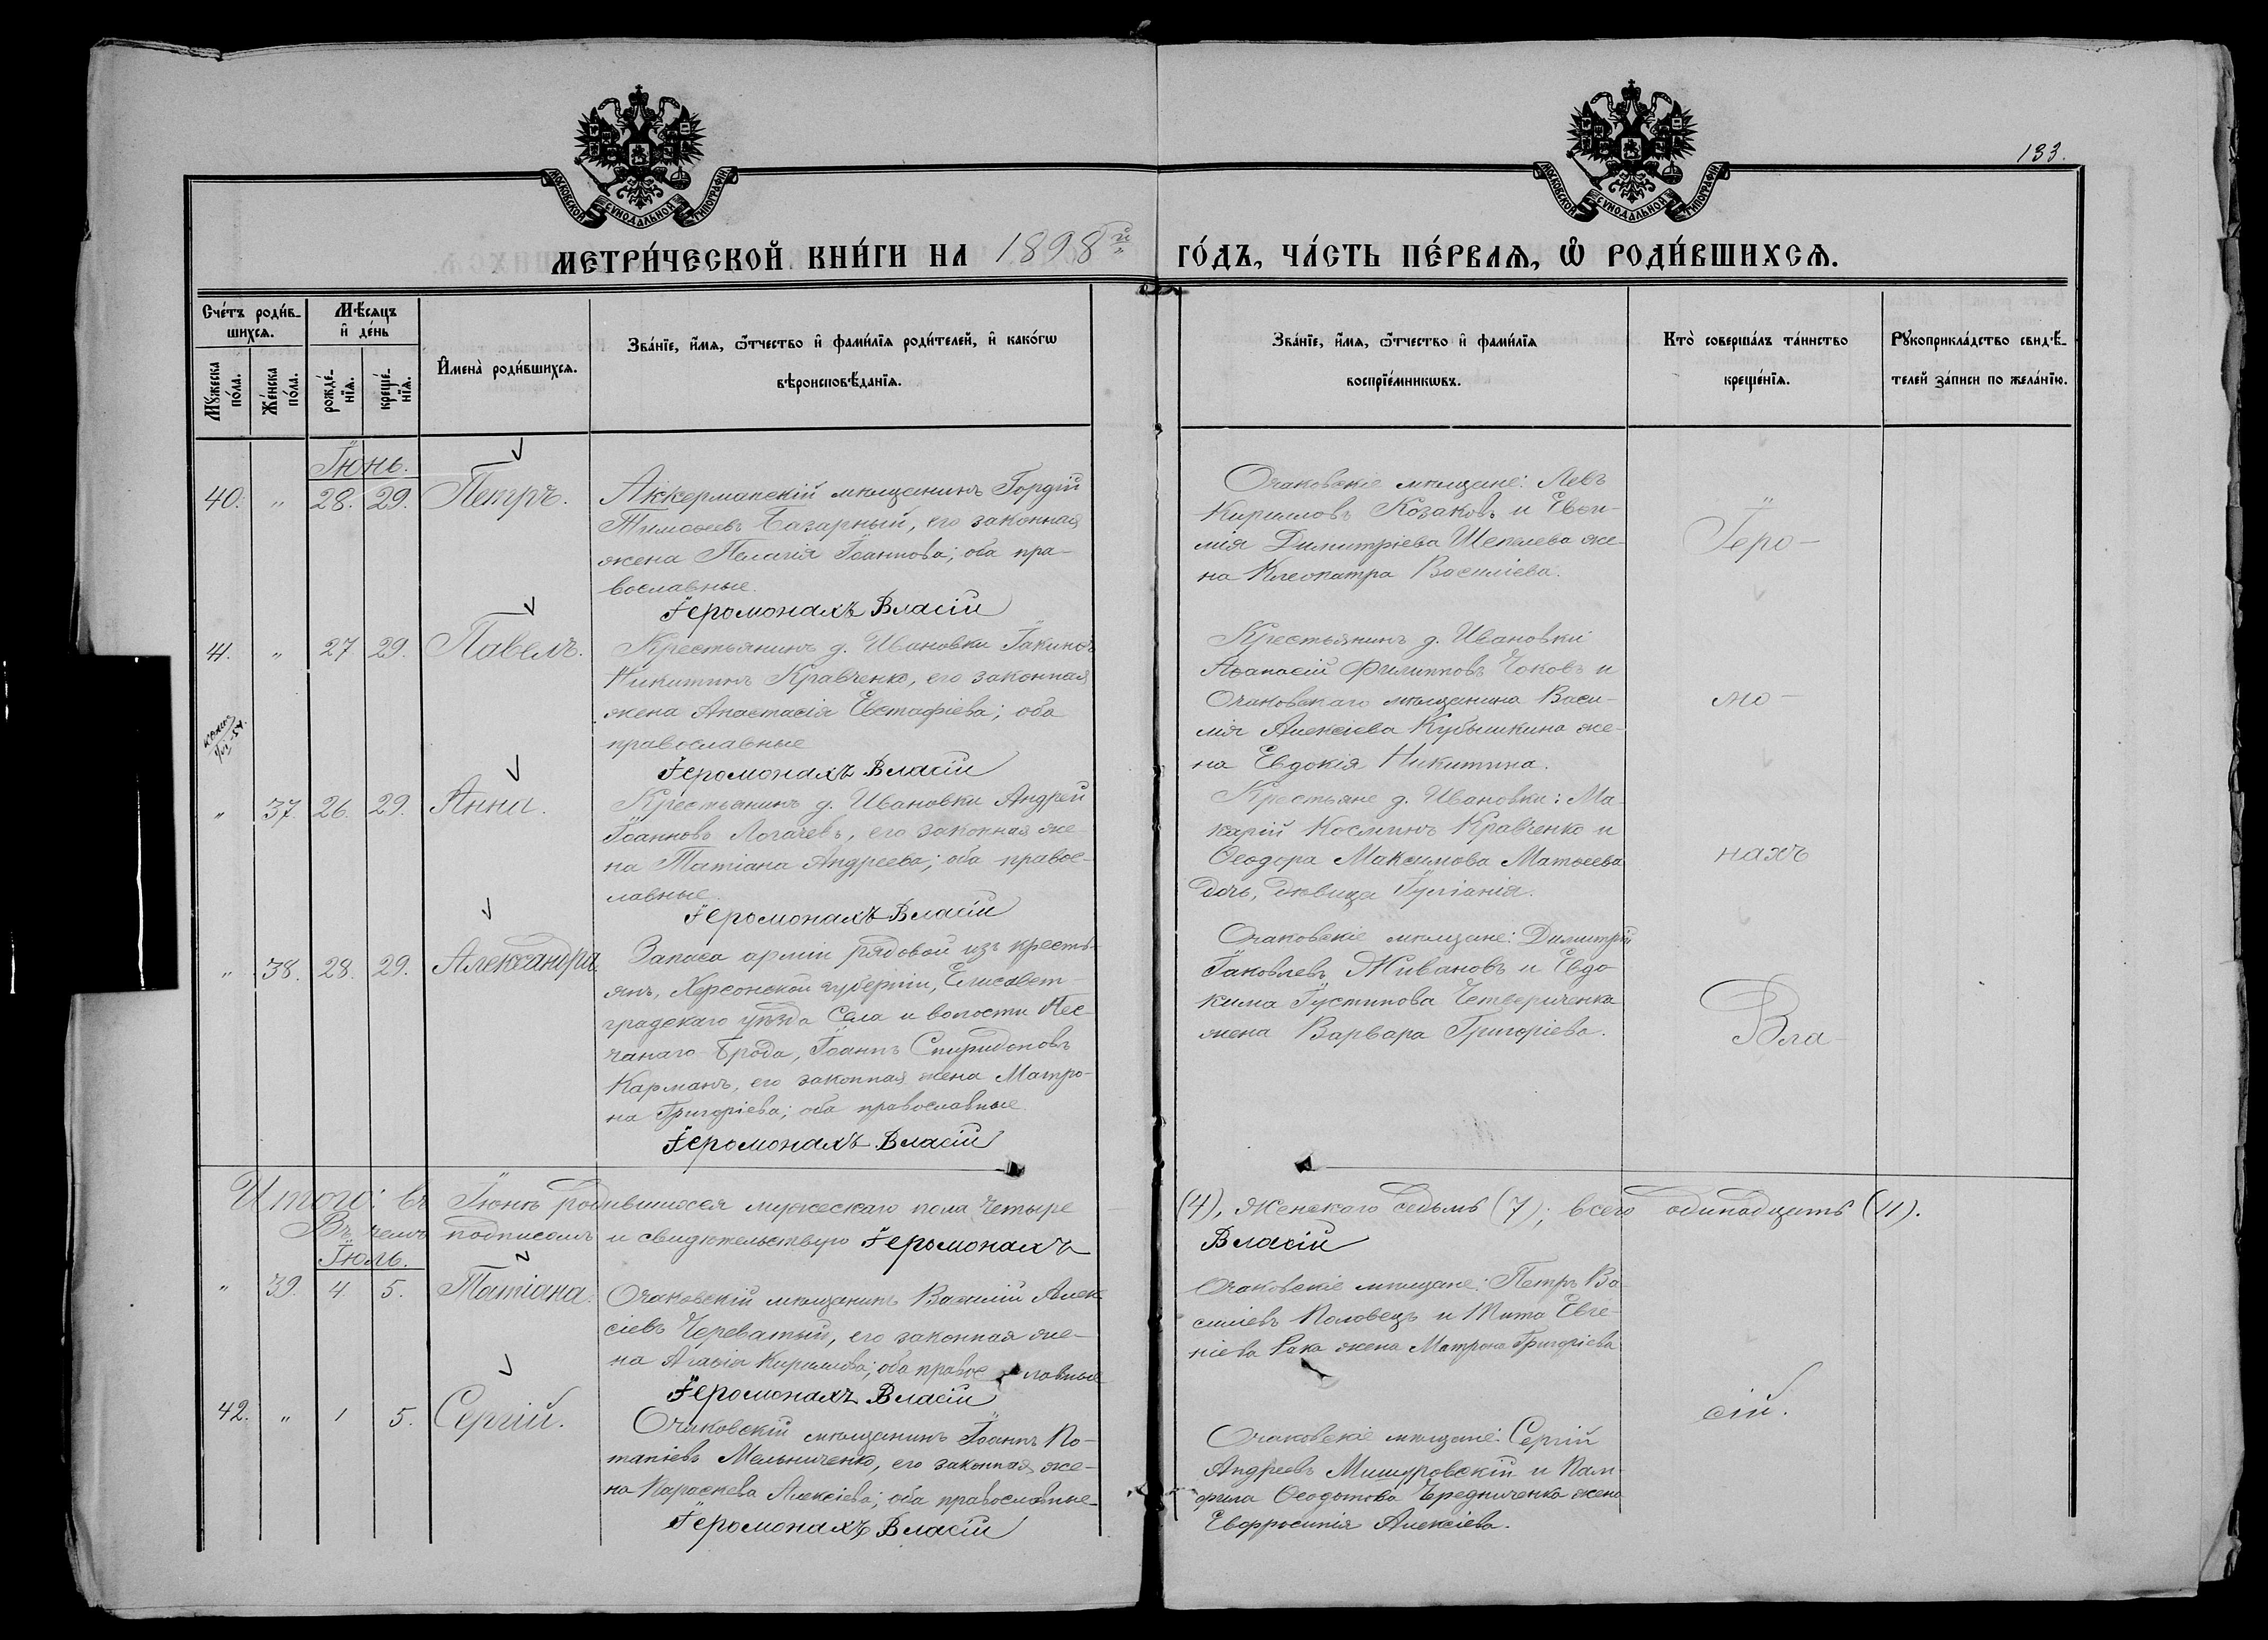 133.
МОСКОВСКОЙ СѴНОДАЛЬНОЙ ТИПОГРАФІИ
МОСКОВСКОЙ СѴНОДАЛЬНОЙ ТИПОГРАФІИ
МЕТРИ́ЧЕСКОЙ КНИ́ГИ НА 1898й
ГО́ДЪ, ЧА́СТЬ ПЕ́РВАѦ, Ѡ҆ РОДИ́ВШИХСѦ.
Сче́тъ роди́в-
шихсѧ.
Мꙋ́жеска по́ла.
Же́нска по́ла.
Мѣ́сѧцъ
и҆ де́нь
рожде́-
нїѧ.
креще́-
нїѧ.
И҆мена̀ роди́вшихсѧ.
Зва́нїе, и҆́мѧ, ѻ҆́тчество и҆ фами́лїѧ роди́телей, и҆ како́гѡ
вѣроисповѣ́данїѧ.
Зва́нїе, и҆́мѧ, ѻ҆́тчество и҆ фами́лїѧ
воспрїе́мникѡвъ.
Кто̀ соверша́лъ та́инство
креще́нїѧ.
Рꙋкоприкла́дство свидѣ́-
телей за́писи по жела́нїю.
Іюнь.
40. " 28. 29. Петръ.
Аккерманскій мѣщанинъ Гордій
Тимоѳеевъ Базарный, его законная
жена Пелагія Іоаннова; оба пра-
вославные.
Іеромонахъ Власій
Очаковскіе мѣщане: Левъ
Кирилловъ Козаковъ и Евѳи-
мія Димитріева Шепелева же-
на Клеопатра Василіева.
Іеро-
41. " 27 29. Павелъ.
Крестьянинъ д. Ивановки Іакинѳъ
Никитинъ Кравченко, его законная
жена Анастасія Евстафіева; оба
православные
Іеромонахъ Власій
Крестьянинъ д. Ивановки
Аѳанасій Филипповъ Чоковъ и
Очаковскаго мѣщанина Васи-
лія Алексіева Кубышкина же-
на Евдокія Никитина.
мо-
" 37. 26. 29. Анна.
Крестьянинъ д. Ивановки Андрей
Іоанновъ Логачевъ, его законная же-
на Татіана Андреева; оба правос-
лавные.
Іеромонахъ Власій
Крестьяне д. Ивановки: Ма-
карій Косминъ Кравченко и
Ѳеодора Максимова Матвеева
дочь, дѣвица Іуліанія.
нахъ
" 38. 28. 29. Александра.
Запаса арміи рядовой изъ кресть-
янъ, Херсонской губерніи, Елисавет-
градскаго уѣзда Села и волости Пес-
чанаго-Брода, Іоаннъ Спиридоновъ
Карманъ, его законная жена Матро-
на Григоріева; оба православные
Іеромонахъ Власій
Очаковскіе мѣщане: Димитрій
Іаковлевъ Живановъ и Евдо-
кима Іустинова Четвериченка
жена Варвара Григоріева.
Вла-
Итого: въ Іюнѣ родившихся мужескаго пола четыре
(4), женскаго седьмъ (7); всего одинадцать (11).
Въ чемъ подписомъ и свидѣтельствую Іеромонахъ
Власій
Іюль.
" 39. 4 5. Татіана.
Очаковскій мѣщанинъ Василій Алек-
сіевъ Череватый, его законная же-
на Агафія Кириллова; оба православные
Іеромонахъ Власій
Очаковскіе мѣщане: Петръ Ва-
силіевъ Половецъ и Тита Евге-
ніева Рака жена Матрона Григоріева
42. " 1 5. Сергій.
Очаковскій мѣщанинъ Іоаннъ По-
тапіевъ Мельниченко, его законная же-
на Параскева Алексіева; оба православные
Іеромонахъ Власій
Очаковскіе мѣщане: Сергій
Андреевъ Мишуровскій и Пам-
фила Ѳеодотова Чередниченка жена
Евфросинія Алексіева.
сій.